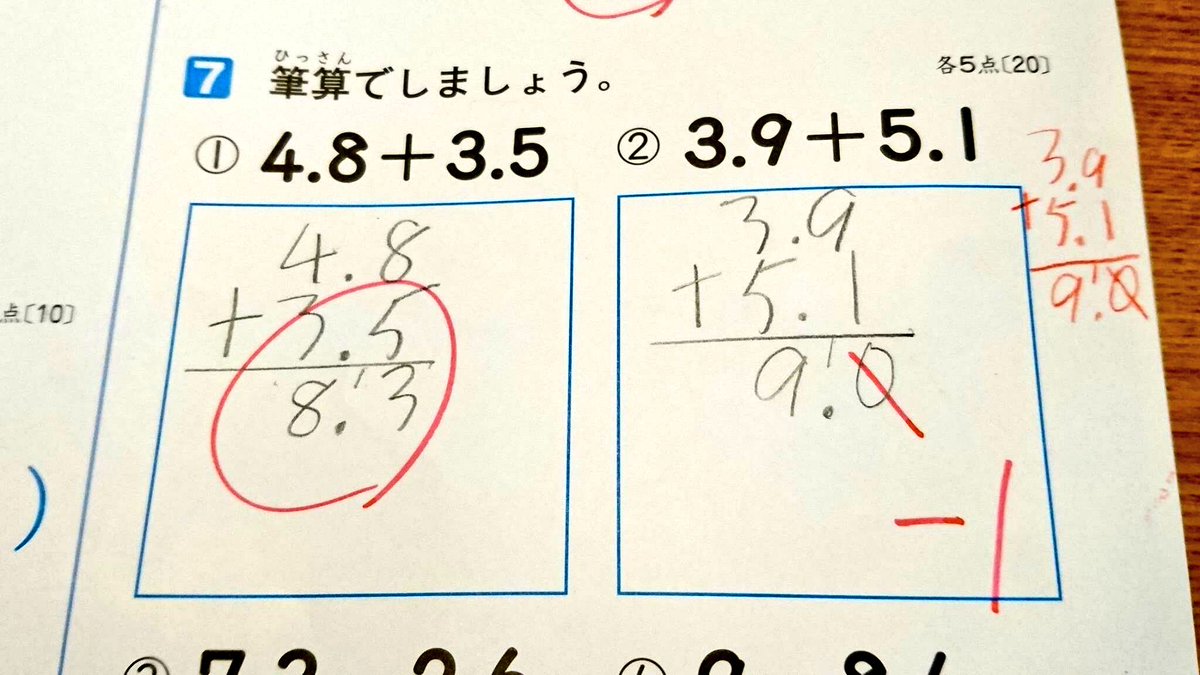 7 筆算でしましょう。 各5点〔20〕
ひっさん
① 4.8+3.5
② 3.9+5.1
4.8
+3.5
8.3
1
3.9
+5.1
9.0
1
-1
3.9
+5.1
9.0
1
点〔10〕
)